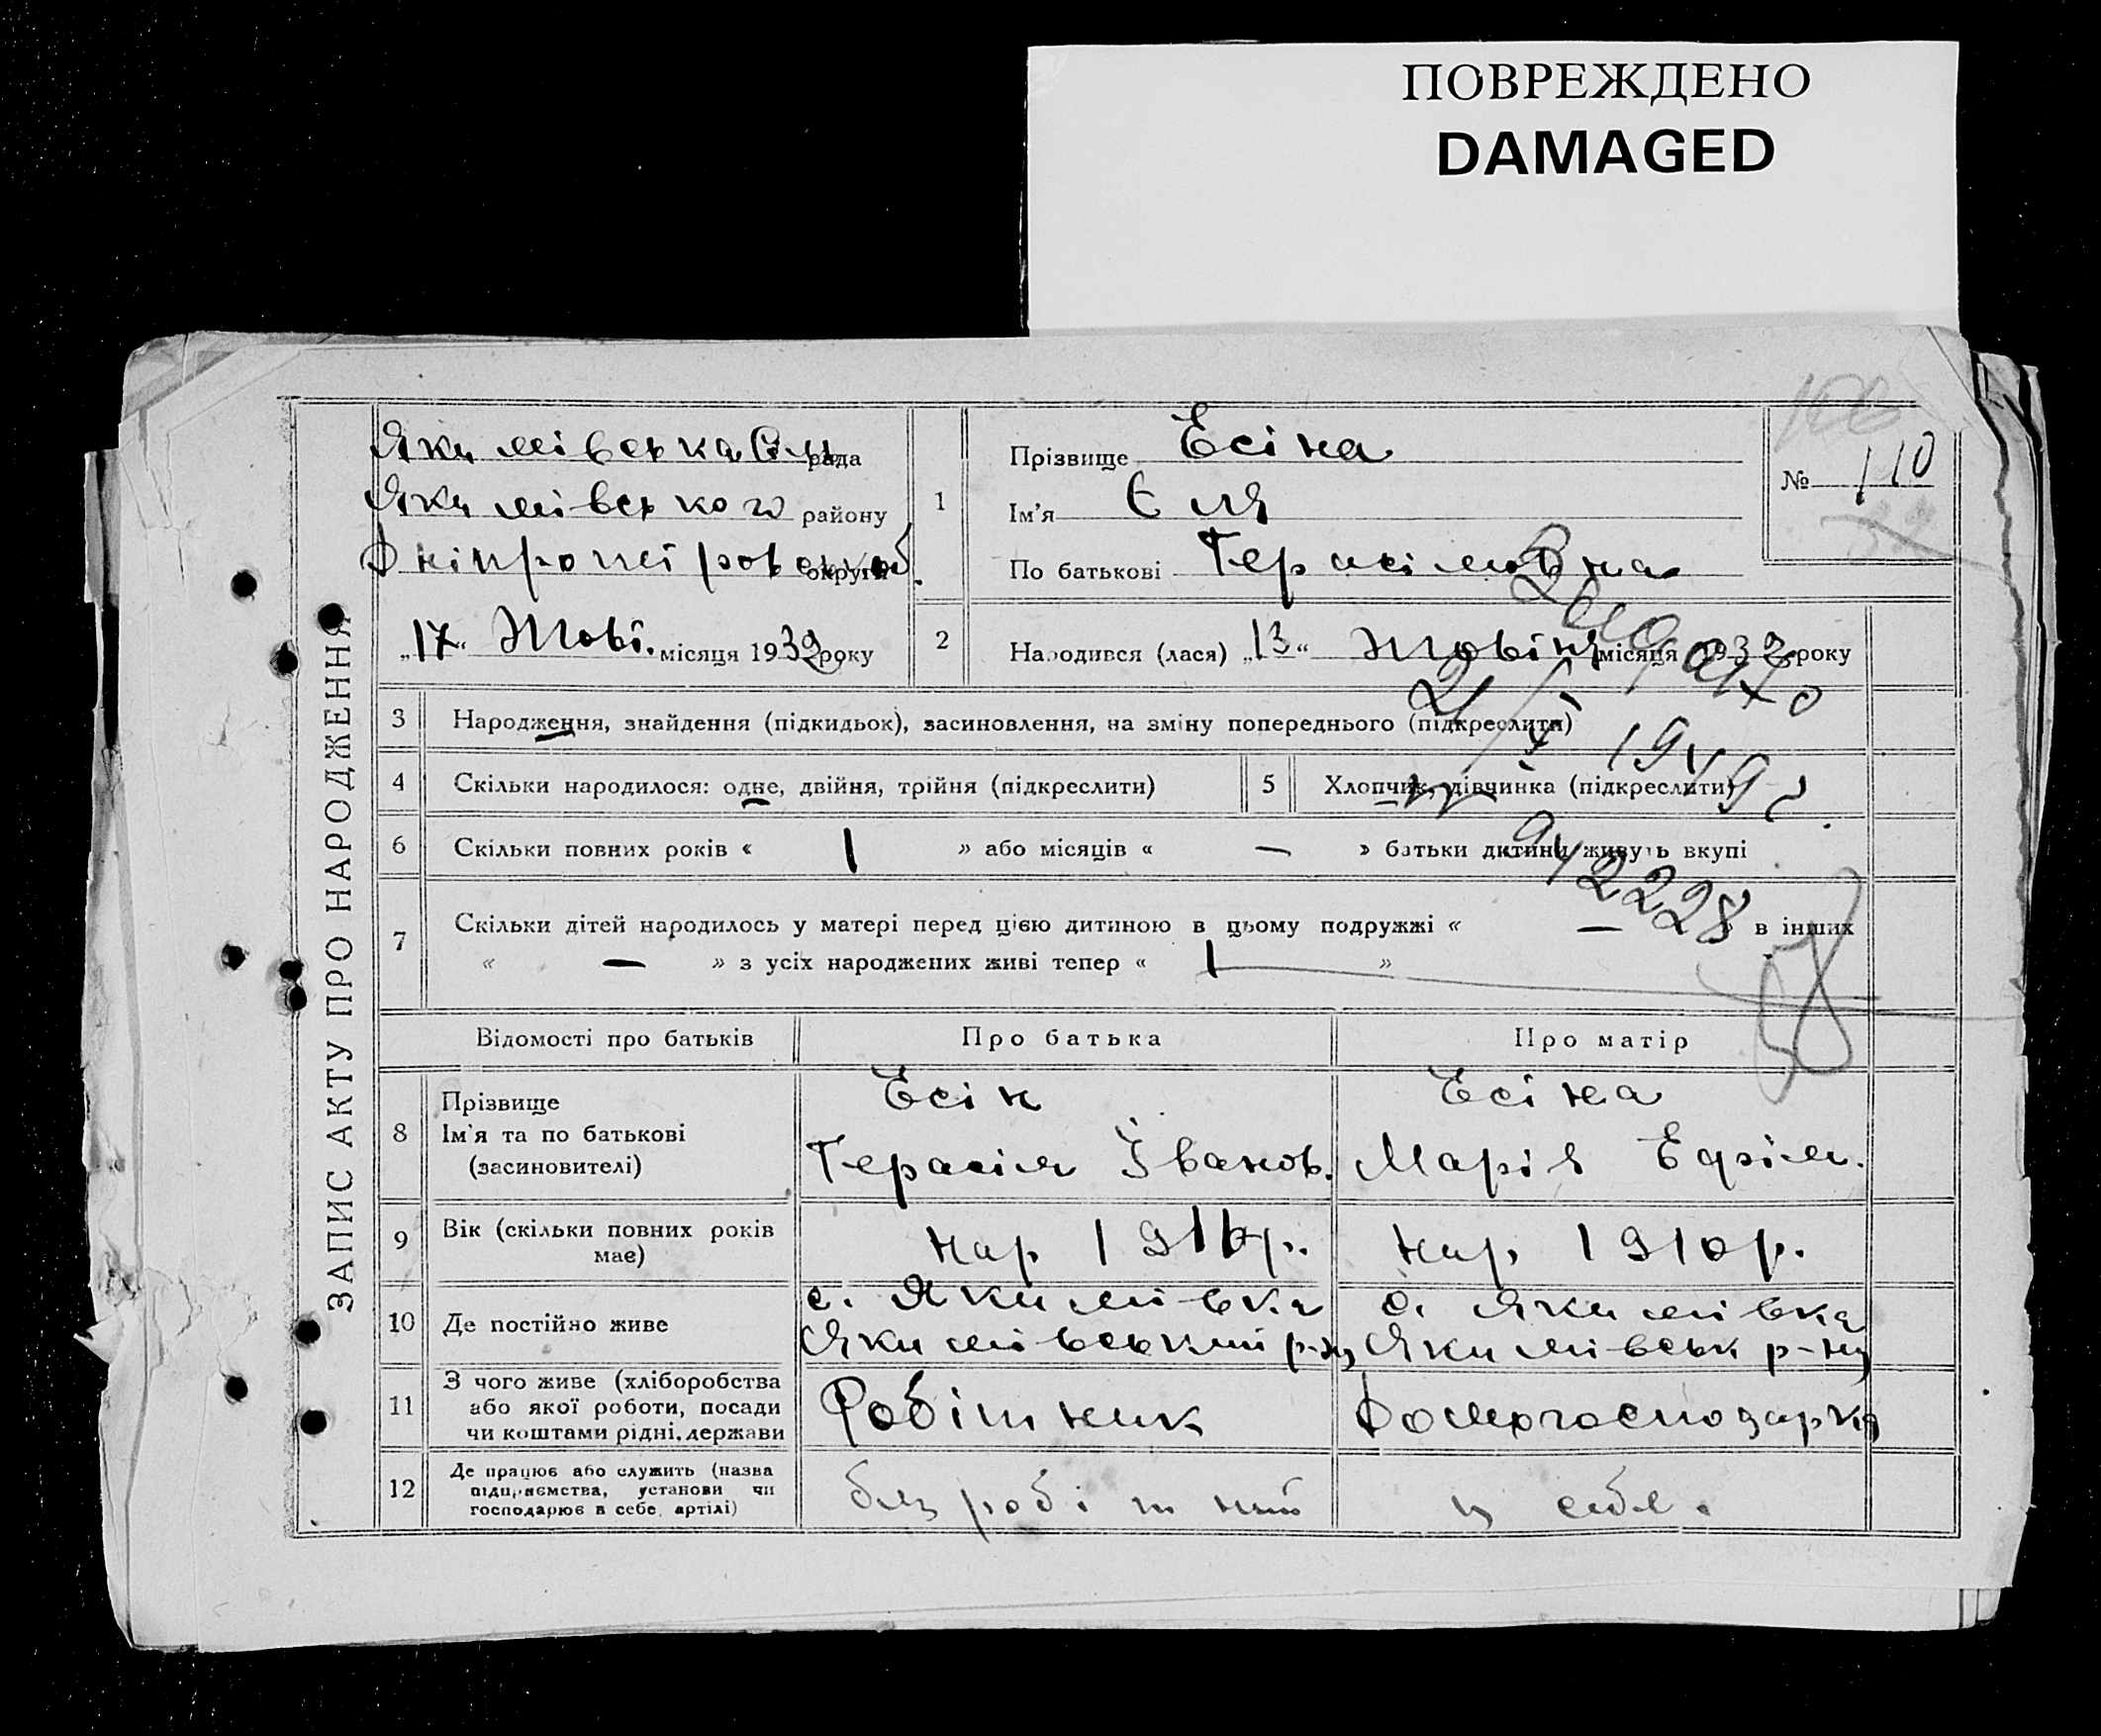 ПОВРЕЖДЕНО
DAMAGED
ЗАПИС АКТУ ПРО НАРОДЖЕННЯ
Якимівська Сіль рада
Якимівського району
Дніпропетровської обл. округи
„17“ Жовт. місяця 1932 року
1
Прізвище Есіна
Ім'я Еля
По батькові Герасімовна
№ 110
2
Народився (лася) „13“ Жовтня місяця 1932 року
3 Народження, знайдення (підкидьок), засиновлення, на зміну попереднього (підкреслити)
4 Скільки народилося: одне, двійня, трійня (підкреслити)
5 Хлопчик, дівчинка (підкреслити)
6 Скільки повних років « 1 » або місяців « — » батьки дитини живуть вкупі
7 Скільки дітей народилось у матері перед цією дитиною в цьому подружжі « — » в інших
« — » з усіх народжених живі тепер « 1 »
21/X 1949 г.
942228
58
Відомості про батьків Про батька Про матір
8 Прізвище
Ім'я та по батькові
(засиновителі)
Есін
Герасім Іванов.
Есіна
Марія Ефрім.
9 Вік (скільки повних років
має)
нар р.
нар 1910 р.
10 Де постійно живе
с. Якимівка
Якимівський р-ну
с. Якимівка
Якимівськ р-ну
11 З чого живе (хліборобства
або якої роботи, посади
чи коштами рідні, держави
Робітник
Домогосподарка
12 Де працює або служить (назва
підприємства, установи чи
господарює в себе, артілі)
безробітний
у себе.